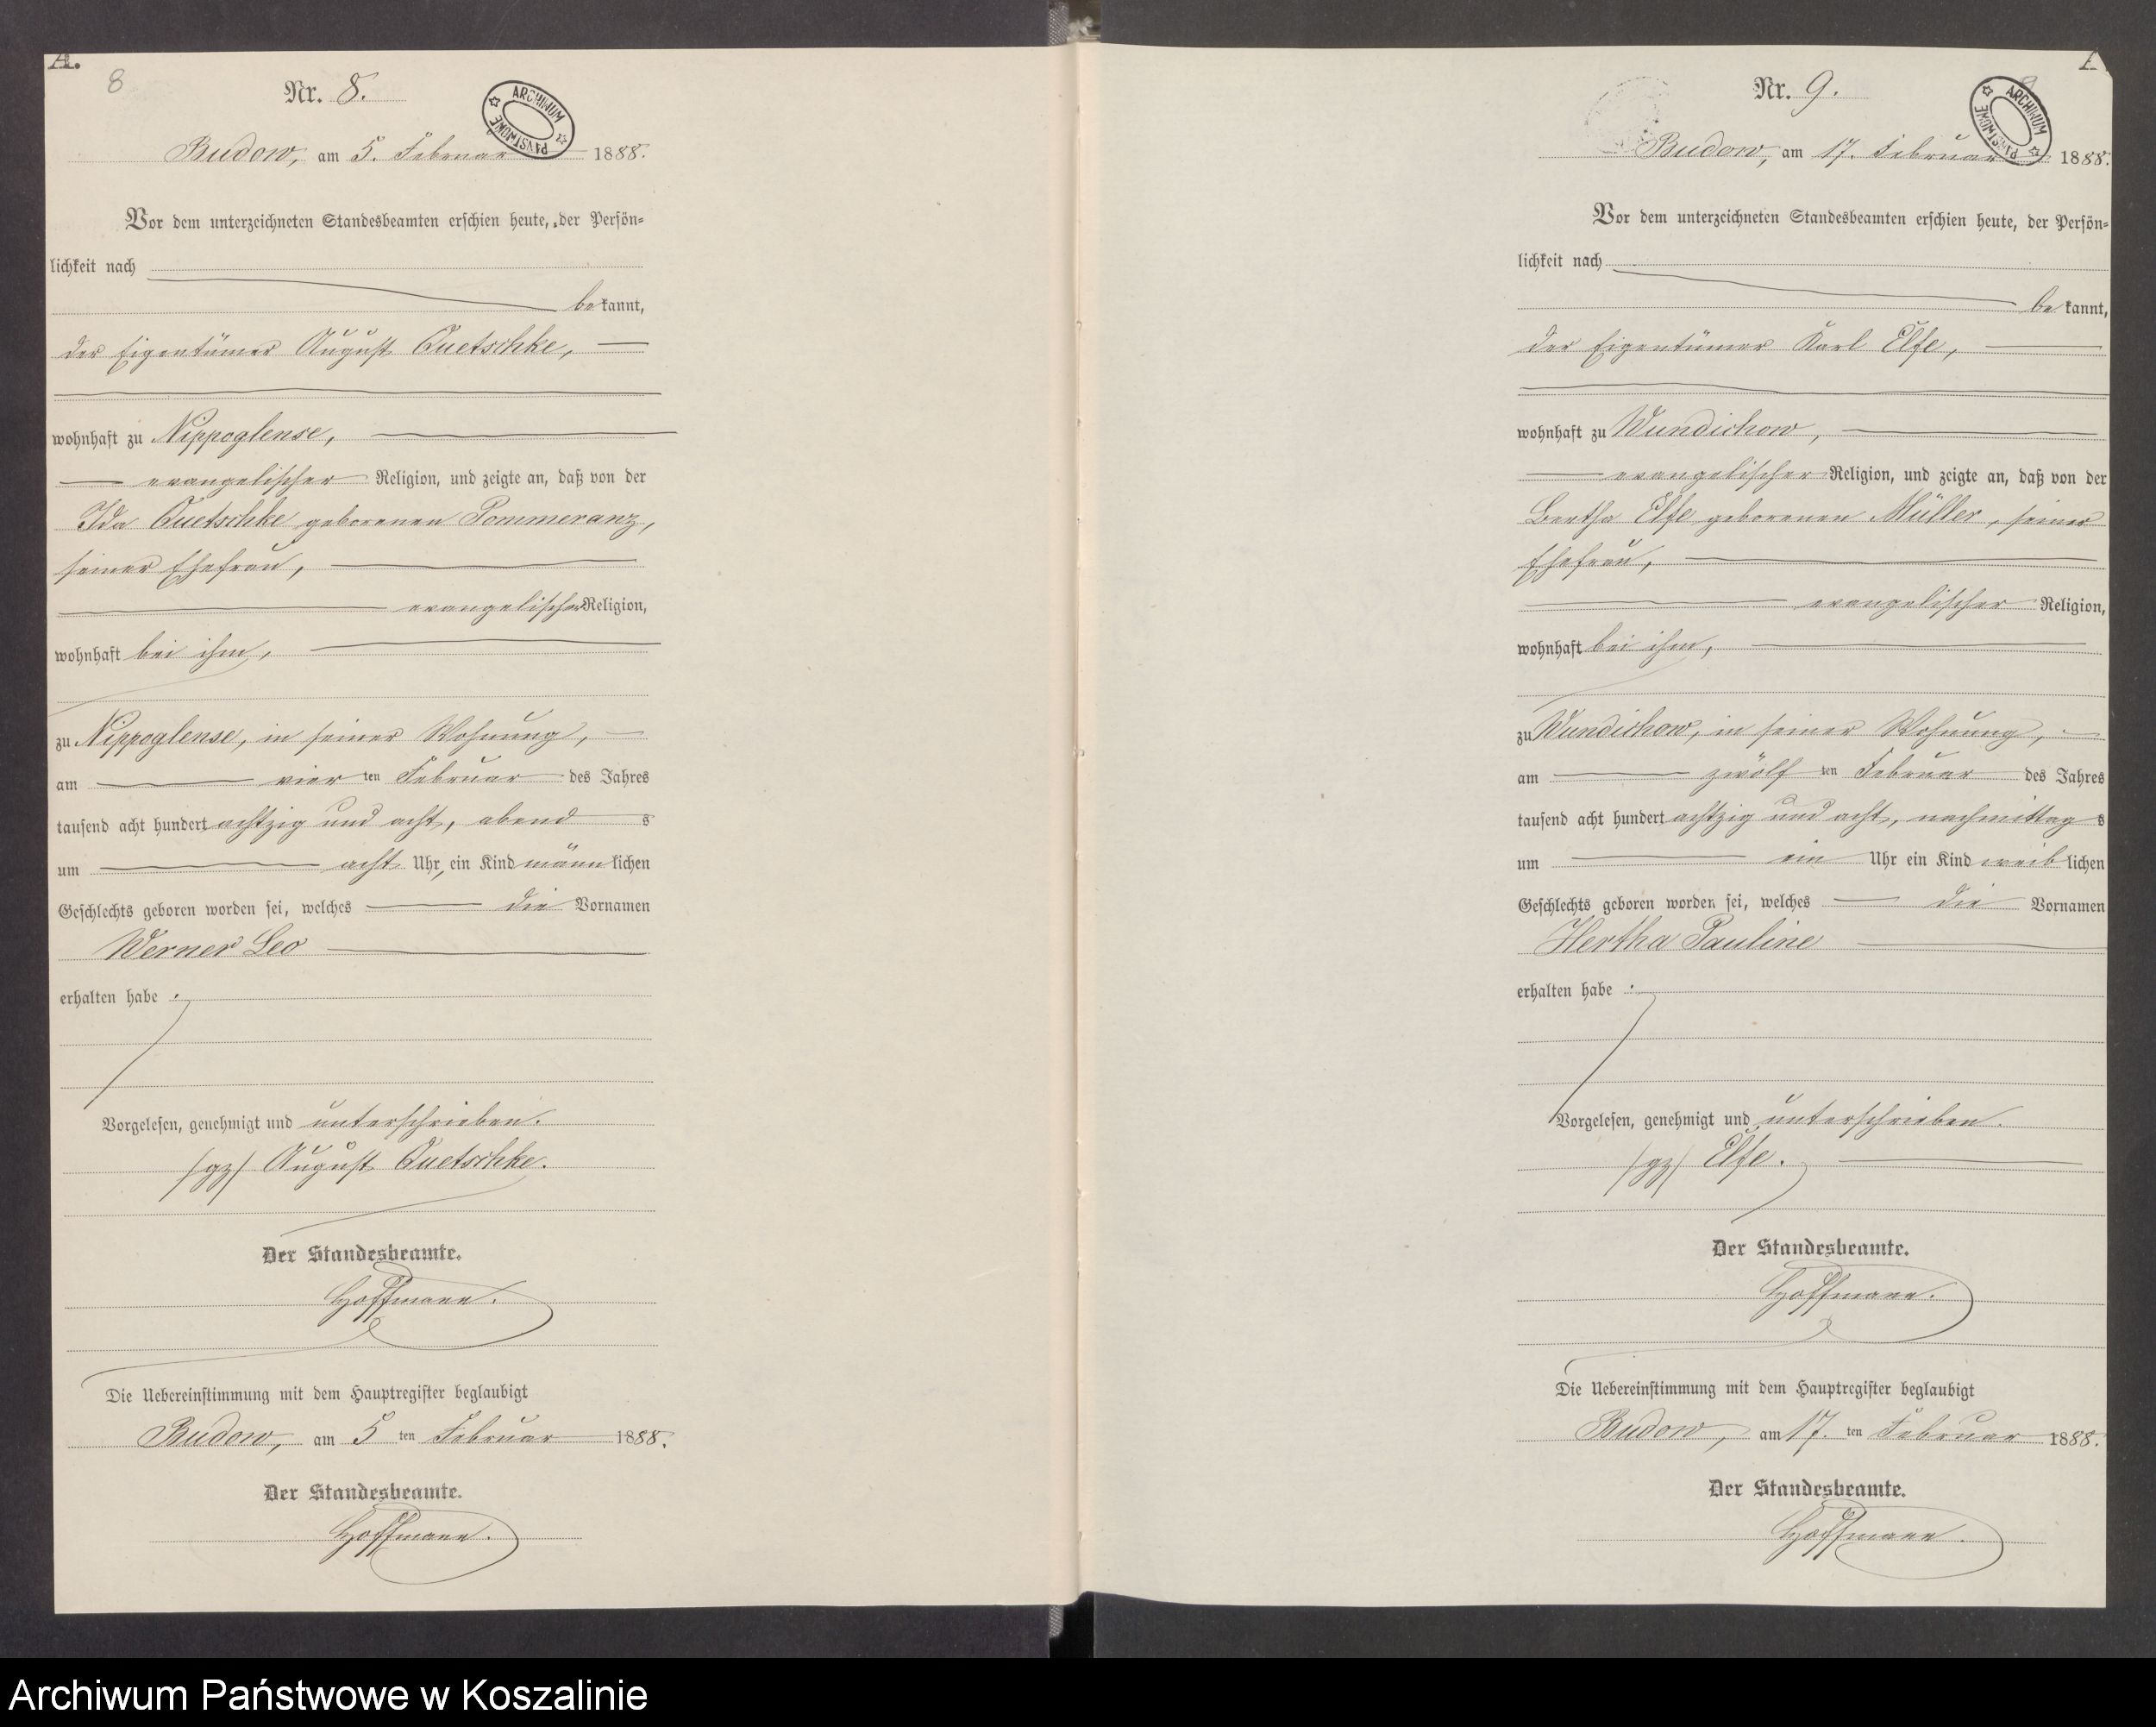 A.
8
Nr. 8.
ARCHIWUM PAŃSTWOWE
Budow, am 5. Februar 1888.
Vor dem unterzeichneten Standesbeamten erschien heute, der Persön-
lichkeit nach
bekannt,
der Eigentümer August Quetschke,
wohnhaft zu Nippoglense,
evangelischer Religion, und zeigte an, daß von der
Ida Quetschke geborenen Pommeranz,
seiner Ehefrau,
evangelischer Religion,
wohnhaft bei ihm,
zu Nippoglense, in seiner Wohnung,
am vierten Februar des Jahres
tausend acht hundert achtzig und acht, abends
um acht Uhr, ein Kind männlichen
Geschlechts geboren worden sei, welches die Vornamen
Werner Leo
erhalten habe.
Vorgelesen, genehmigt und unterschrieben.
(gz) August Quetschke.
Der Standesbeamte.
Hoffmann.
Die Uebereinstimmung mit dem Hauptregister beglaubigt
Budow, am 5ten Februar 1888.
Der Standesbeamte.
Hoffmann.
Nr. 9.
ARCHIWUM PAŃSTWOWE
Budow, am 17. Februar 1888.
Vor dem unterzeichneten Standesbeamten erschien heute, der Persön-
lichkeit nach
bekannt,
der Eigentümer Karl Elfe,
wohnhaft zu Wundichow,
evangelischer Religion, und zeigte an, daß von der
Bertha Elfe geborenen Müller, seiner
Ehefrau,
evangelischer Religion,
wohnhaft bei ihm,
zu Wundichow, in seiner Wohnung,
am zwölften Februar des Jahres
tausend acht hundert achtzig und acht, nachmittags
um ein Uhr ein Kind weiblichen
Geschlechts geboren worden sei, welches die Vornamen
Hertha Pauline
erhalten habe.
Vorgelesen, genehmigt und unterschrieben.
(gz) Elfe.
Der Standesbeamte.
Hoffmann.
Die Uebereinstimmung mit dem Hauptregister beglaubigt
Budow, am 17.ten Februar 1888.
Der Standesbeamte.
Hoffmann.
Archiwum Państwowe w Koszalinie